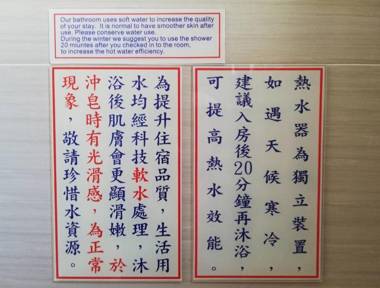 Our bathroom uses soft water to increase the quality
of your stay. It is normal to have smoother skin after
use. Please conserve water use.
During the winter we suggest you to use the shower
20 miuntes after you checked in to the room,
to increase the hot water efficiency.
為提升住宿品質，生活用
水均經科技軟水處理，沐
浴後肌膚會更顯滑嫩，於
沖皂時有光滑感，為正常
現象，敬請珍惜水資源。
熱水器為獨立裝置，
如遇天候寒冷，
建議入房後20分鐘再沐浴，
可提高熱水效能。